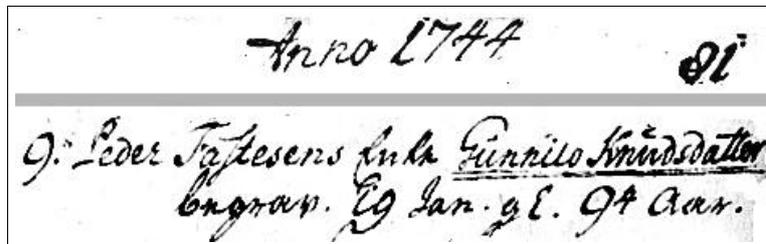 Anno 1744
81
9. Peder Taftesens Enke Gunnilo Knudsdatter
begrav. 19 Jan. gl. 94 Aar.